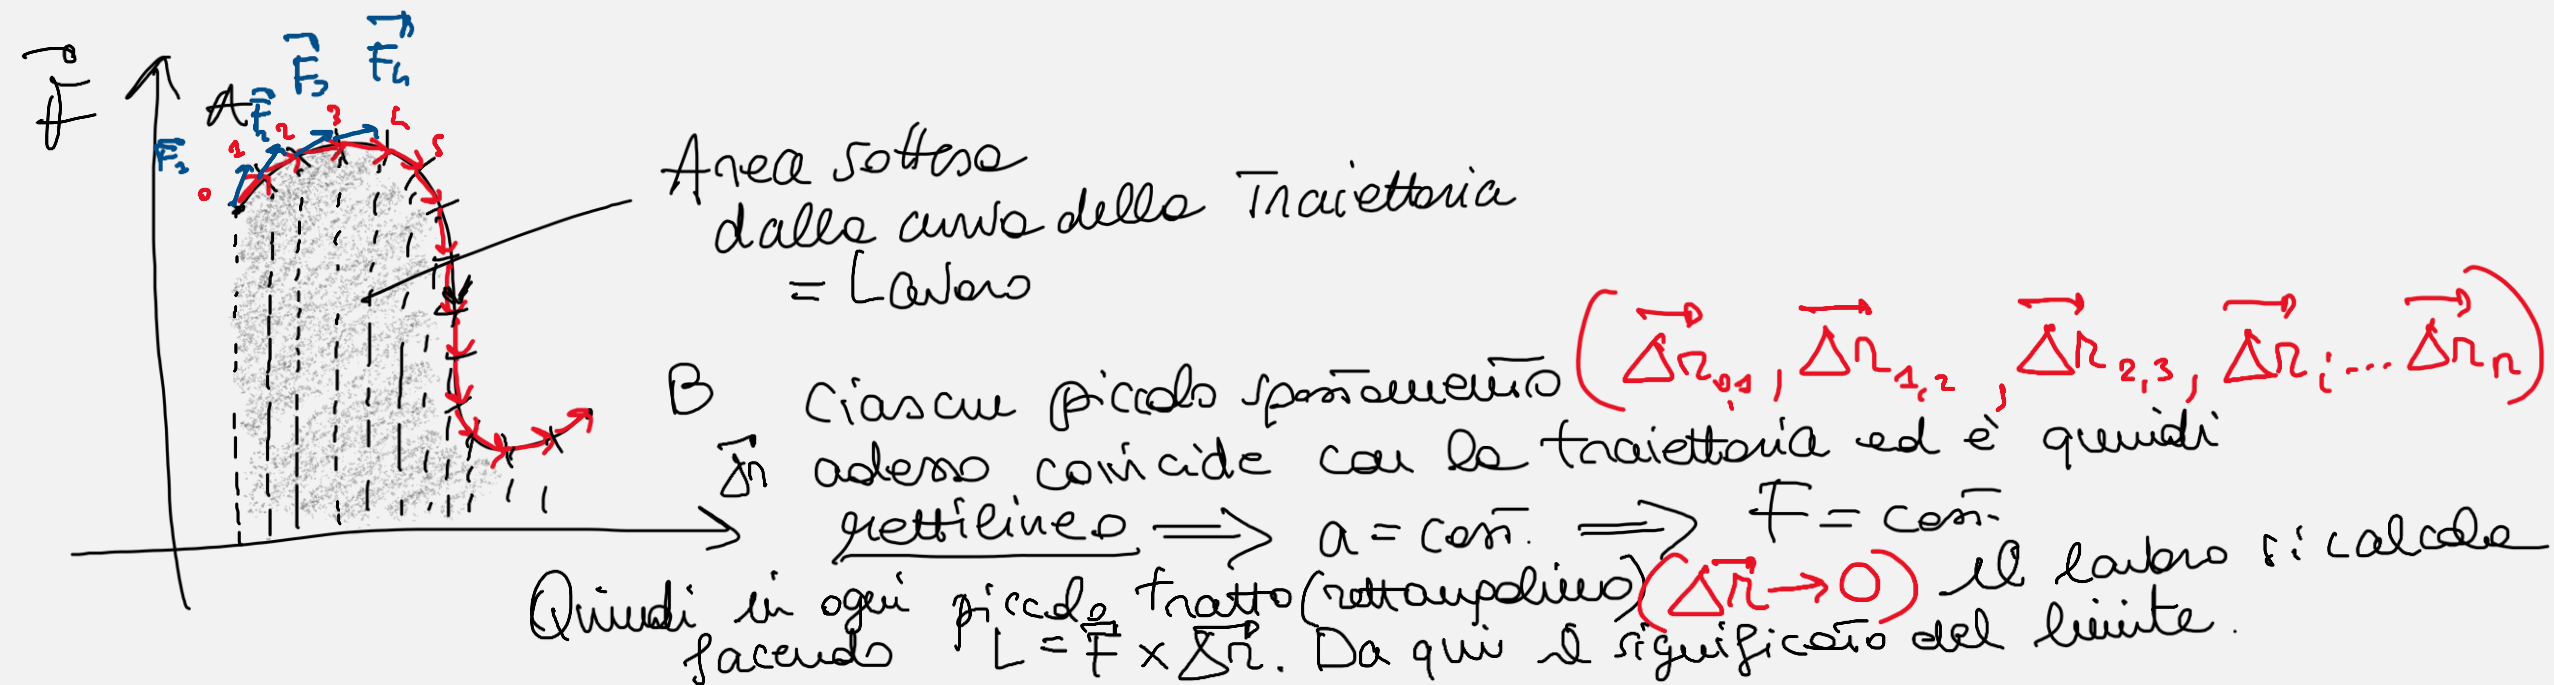 F
A
F₁ F₂ F₃ F₄
0 1 2 3 4 5
Area sottesa
dalla curva della Traiettoria
= Lavoro
B
Ciascun piccolo spostamento (Δr₀,₁, Δr₁,₂, Δr₂,₃, Δrᵢ... Δrₙ)
Δr adesso coincide con la traiettoria ed è quindi
rettilineo ⇒ a = cost. ⇒ F = cost.
Quindi in ogni piccolo tratto (rettangolino) (Δr → 0) il lavoro si calcola
facendo L = F × Δr. Da qui il significato del limite.